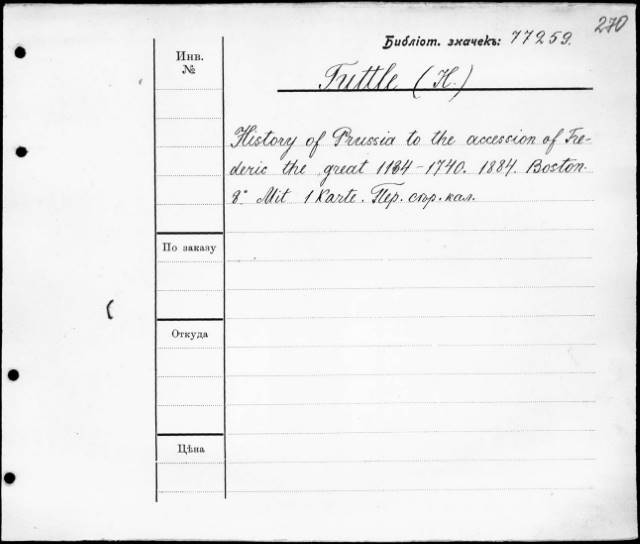 270
Библіот. значекъ: 77259.
Инв.
№
Tuttle (H.)
History of Prussia to the accession of Fre-
deric the great 1134–1740. 1884. Boston.
8° Mit 1 Karte. Пер. сѣр. кал.
По заказу
Откуда
Цѣна